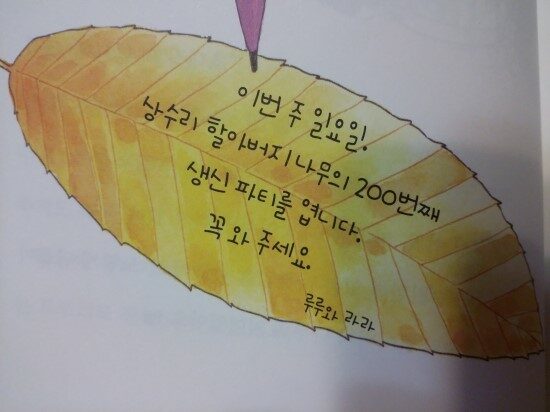 이번 주 일요일!
상수리 할아버지 나무의 200번째
생신 파티를 엽니다.
꼭 와 주세요.
루루와 라라